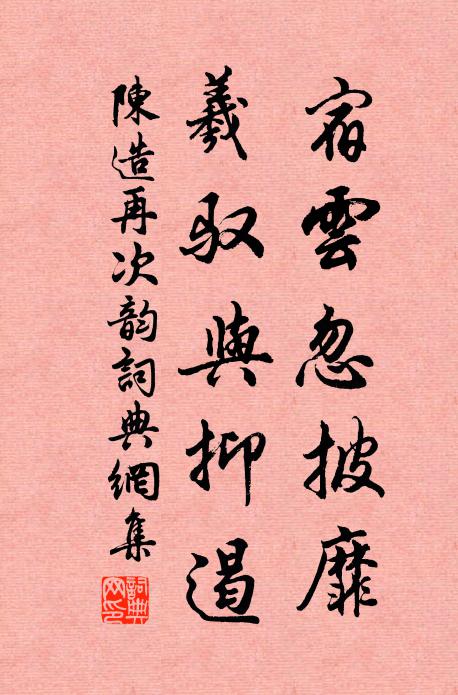 宿雲忽披靡
羲馭與抑遏
陳造再次韵詞典網集
詞典網印